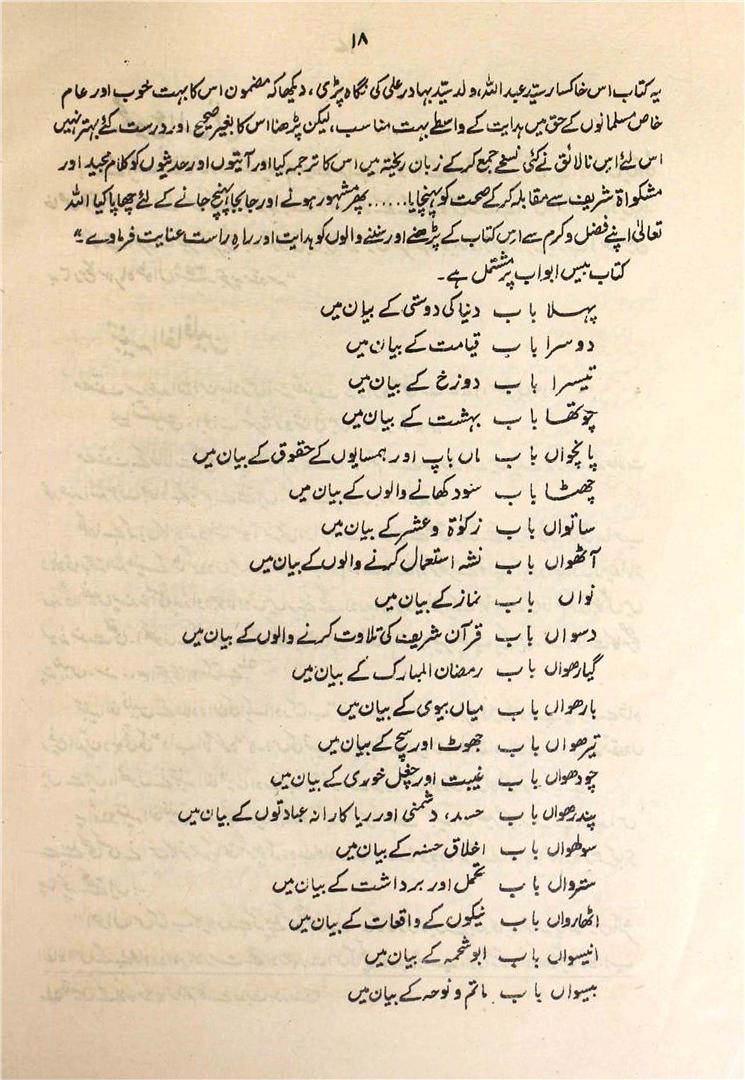 ۱۸
یہ کتاب اس خاکسار سیّد عبداللہ، ولد سیّد بہادر علی کی نگاہ پڑی، دیکھا کہ مضمون اس کا بہت خوب اور عام
خاص مسلمانوں کے حق میں ہدایت کے واسطے بہت مناسب، لیکن پڑھنا اس کا بغیر صحیح اور درست کئے بہتر نہیں
اس لئے اس نالائق نے کئی نسخے جمع کر کے زبان ریختہ میں اس کا ترجمہ کیا اور آیتوں اور حدیثوں کو کلام مجید اور
مشکواۃ شریف سے مقابلہ کر کے صحت کو پہنچایا...... پھر مشہور ہونے اور جا بجا پہنچ جانے کے لئے چھاپا کیا اللہ
تعالیٰ اپنے فضل و کرم سے اس کتاب کے پڑھنے اور سننے والوں کو ہدایت اور راہِ راست عنایت فرماوے"
کتاب بیس ابواب پر مشتمل ہے۔
پہلا باب دنیا کی دوستی کے بیان میں
دوسرا باب قیامت کے بیان میں
تیسرا باب دوزخ کے بیان میں
چوتھا باب بہشت کے بیان میں
پانچواں باب ماں باپ اور ہمسایوں کے حقوق کے بیان میں
چھٹا باب سود کھانے والوں کے بیان میں
ساتواں باب زکوٰۃ و عشر کے بیان میں
آٹھواں باب نشہ استعمال کرنے والوں کے بیان میں
نواں باب نماز کے بیان میں
دسواں باب قرآن شریف کی تلاوت کرنے والوں کے بیان میں
گیارھواں باب رمضان المبارک کے بیان میں
بارھواں باب میاں بیوی کے بیان میں
تیرھواں باب جھوٹ اور سچ کے بیان میں
چودھواں باب غیبت اور چغل خوری کے بیان میں
پندرھواں باب حسد، دشمنی اور ریاکارانہ عبادتوں کے بیان میں
سولھواں باب اخلاق حسنہ کے بیان میں
ستروال باب تحمل اور برداشت کے بیان میں
اٹھارواں باب نیکوں کے واقعات کے بیان میں
انیسواں باب ابو شحمہ کے بیان میں
بیسواں باب ماتم و نوحہ کے بیان میں